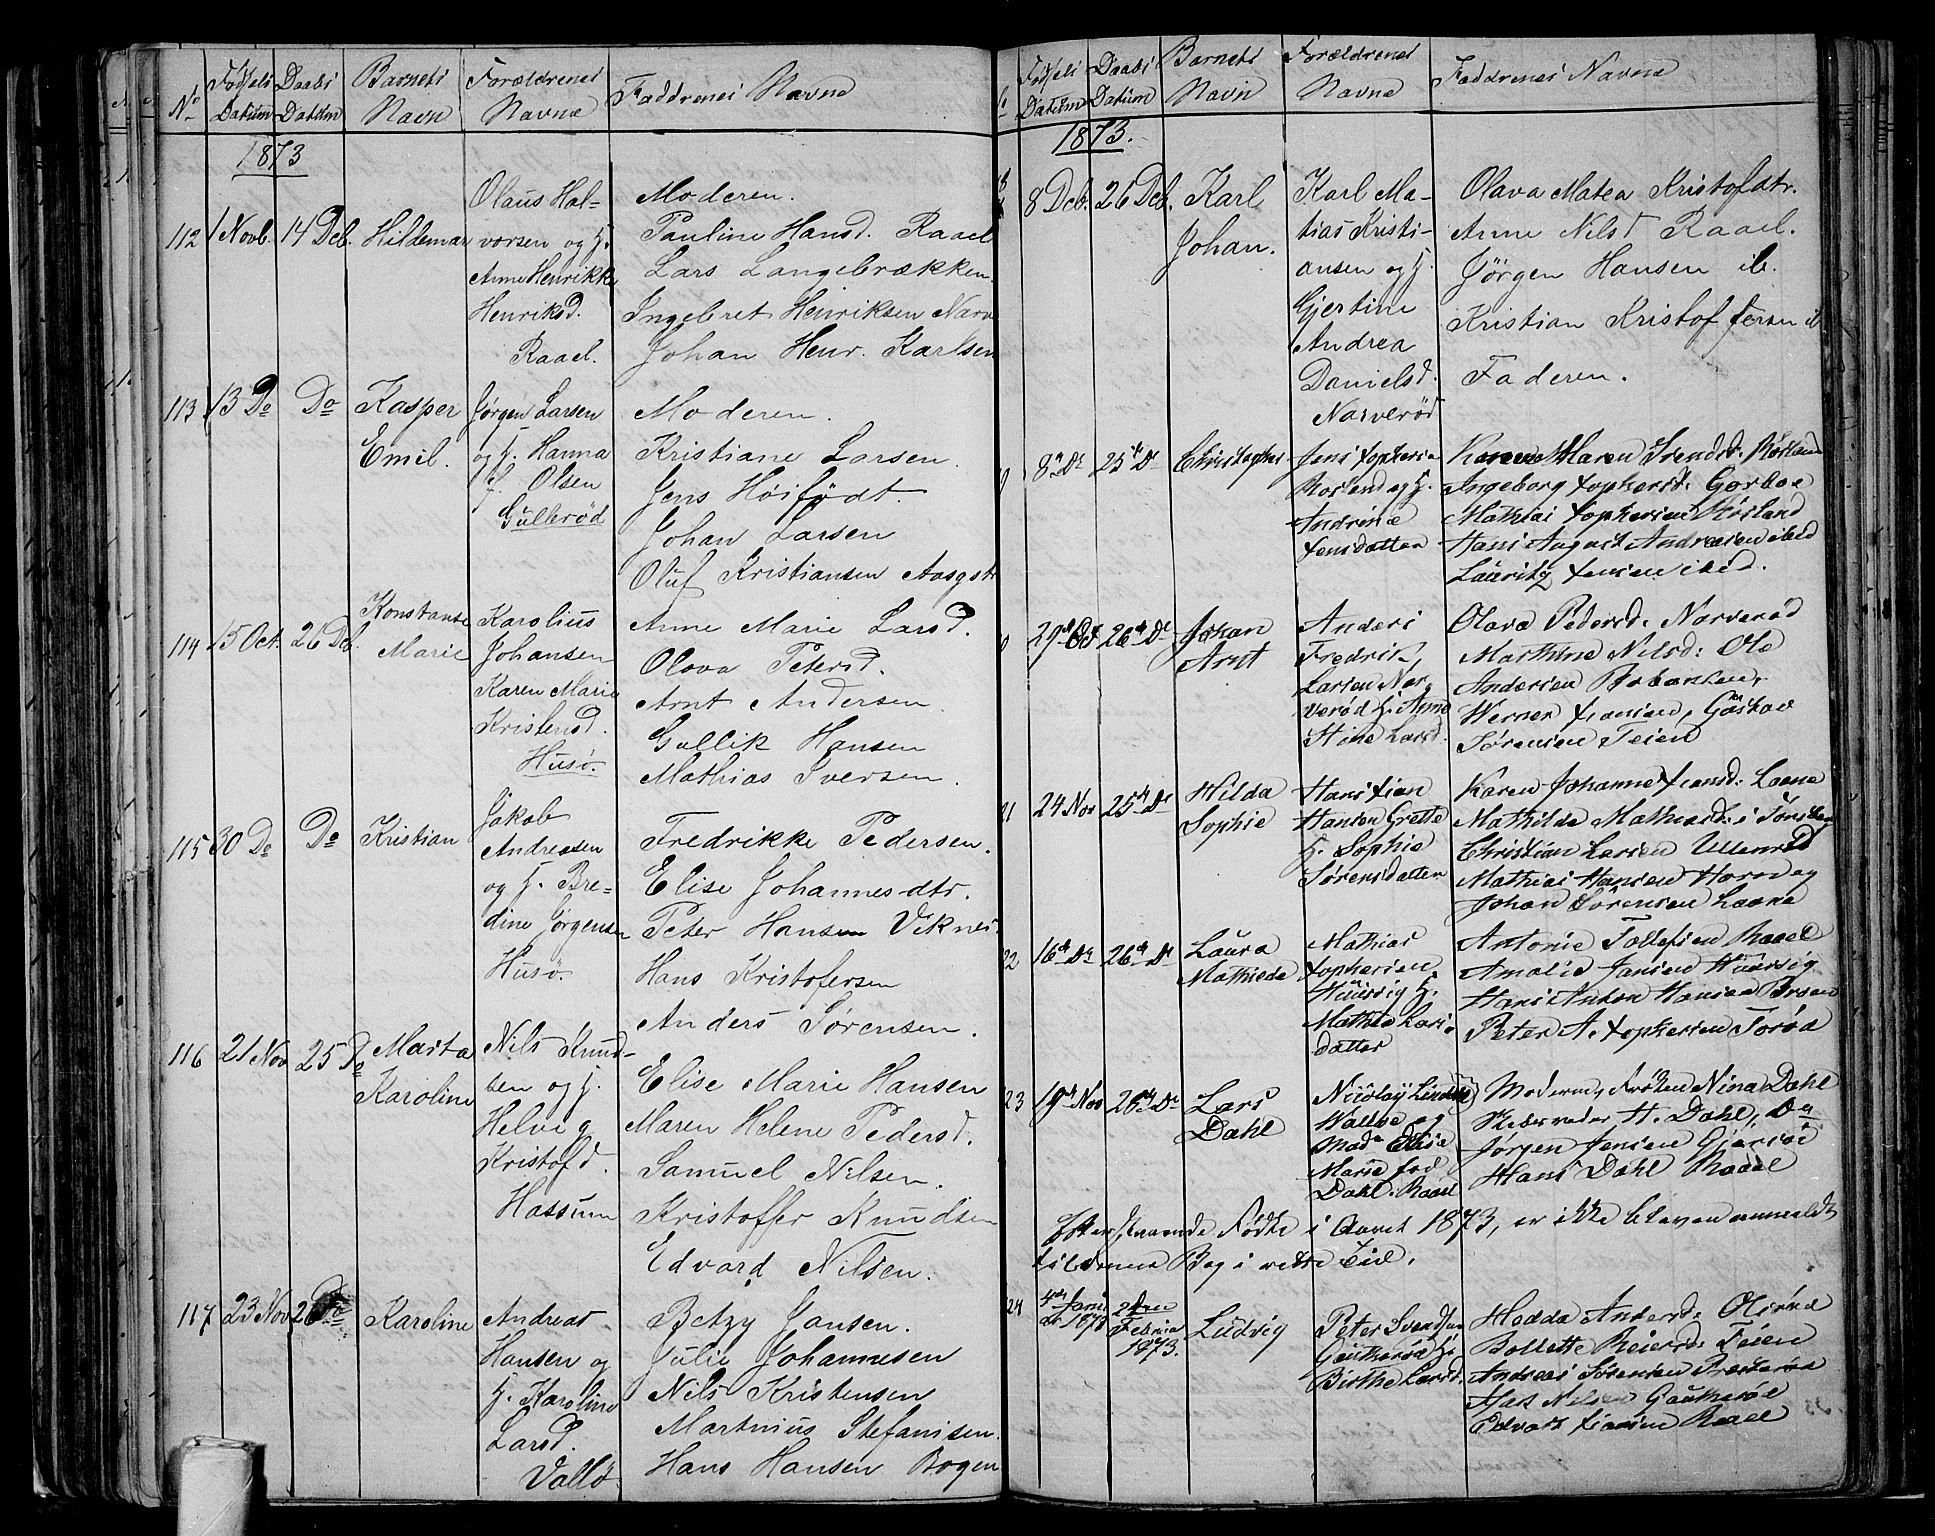 No Fødsels Datum Daabs Datum Barnets Navn Forældrenes Navne Faddrenes Navne
1873
112 1 Novb. 14 Dcb. Hildemar
Olaus Hal-
vorsen og H.
Anne Henrikke
Henriksd.
Raael.
Moderen.
Pauline Hansd. Raael
Lars Langebrækken
Ingebret Henriksen Narv
Johan Henr. Karlsen
113 13 Do Do Kasper
Emil.
Jørgen Larsen
og H. Hanna
Olsen
Gulbrød
Moderen.
Kristiane Larsen.
Jens Höifödt.
Johan Larsen
Oluf Kristiansen Aasgst
114 15 Oct. 26 Dcb. Konstanse
Marie
Karolius
Johansen
Karen Marie
Kristensd.
Husø.
Anne Marie Larsd.
Olava Petersd.
Arnt Andersen.
Gullik Hansen
Mathias Iversen.
115 30 Do Do Kristian
Jakob
Andreasen
og H. Bre-
dine Jørgensen
Husø.
Fredrikke Pedersen.
Elise Johannesdtr.
Peter Hansen Viknes
Hans Kristofersen
Anders Sørensen.
116 21 Nov 25 Do Marta
Karoline
Nils Knud-
sen og H.
Helvig
Kristofd.
Hassum
Elise Marie Hansen
Maren Helene Pedersd.
Samuel Nilsen.
Kristoffer Knudsen
Edvard Nilsen.
117 23 Nov 26 Do Karoline
Andreas
Hansen og
H. Karoline
Larsd.
Vallø.
Betzy Jansen.
Julie Johannesen
Nils Kristensen
Martnius Stefanisen.
Hans Hansen Bogen
Fødsels Datum Daabs Datum Barnets Navn Forældrenes Navne Faddrenes Navne
1873.
8 Dcb. 26 Dcb. Karl
Johan.
Karl Ma-
tias Kristi-
ansen og H.
Gjertine
Andrea
Danielsd.
Narverød
Olava Matea Kristofdtr.
Anne Nilsd Raael.
Jørgen Hansen ib.
Kristian Kristoffersen ib
Faderen.
8de Dc 25de Dc Christopher
Jens Xophersen
Rørland og H.
Andrine
Jensdatter
Karen Maren Svendsd: Rørland
Ingeborg Xophersd: Gorboe
Mathias Xophersen Rørland
Hans August Andresen ibid
Lauritz Jensen ibid.
29de Oct 26de Dc Johan
Arnt
Anders
Fredrik
Larsen Nar-
verød H. Anne
Stine Larsd.
Olava Pedersd: Narverød
Marthine Nilsd: Ole
Andersen
Werner Jansen, Gustav
Sørensen Teien
21 24 Nov 25de Dc Hilda
Sophie
Hans Xian
Hansen Grette
H. Sophie
Sørensdatter
Karen Johanne Jensd: Laane
Mathilde Mathiasd: i Tønsberg
Christian Larsen Ullenrød
Mathias Hansen Horn og
Johan Sørensen Laane
22 16de Dc 26de Dc Laura
Mathilde
Mathias
Xophersen
Huusvig H.
Mathea Lars-
datter
Antonie Tollefsen Raael
Amalie Jansen Huusvig
Hans Anton Hansen Broen
Peter A. Xophersen Torød
23 19de Nov 26de Dc Lars
Dahl
Nicolay Linds
Walbøe og
Mad. Elise
Marie fød
Dahl. Raael
Moderen, Frøken Nina Dahl
Skibsreder H. Dahl, Do
Jørgen Jensen Gjersøe
Hans Dahl Raael
Efternævnte Fødte i Aaret 1873, er ikke bleven anmeldt
til denne Bog i rette Tid.
24 4de Jani
ar 1873
2den
Februar
1873.
Ludvig
Peter Svendsen
Gautherød H.
Birthe Larsd.
Hedda Andersd: Olsrød
Bollette Reiersd: Teien
Andreas Sørensen Presterød
Ajax Nilsen Gautherød
Edvart Hansen Raael